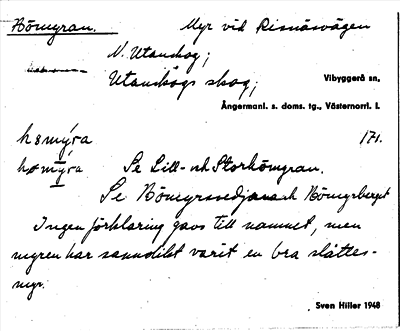 Hömyran. Myr vid Risnäsvägen
N. Utanskog;
Utanskogs skog; Vibyggerå sn,
Ångermanl. s. doms. tg., Västernorrl. l.
hømýra 171.
hømȳra Se Lill- och Storhömyran.
Se Hömyrsvedjan och Hömyrberget
Ingen förklaring gavs till namnet, men
myren har sannolikt varit en bra slåttes-
myr.
Sven Hiller 1948